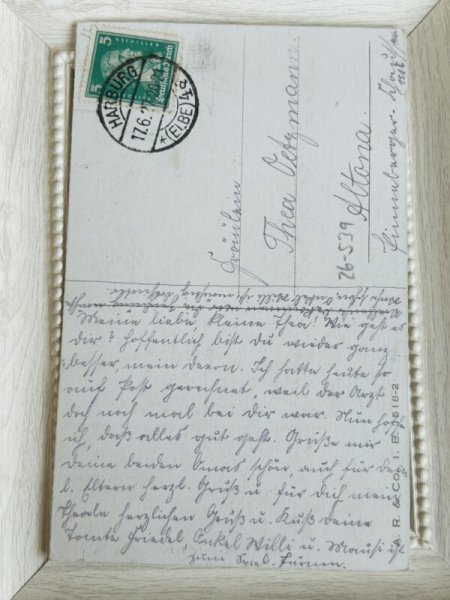 5
Deutsches Reich
HARBURG
17.6.2
*(ELBE)4d
Fräulein
Thea Oetzmann.
Altona.
Pinneberger-
158
26-539
Meine liebe, kleine Thea! Wie geht es
dir? Hoffentlich bist du wieder ganz
besser, mein deern. Ich hatte heute so
auf Post gerechnet, weil der Arzt
doch noch mal bei dir war. Nun hoffe
ich, daß alles gut geht. Grüße mir
deine beiden Omas schön, auch für deine
l. Eltern herzl. Gruß u. für dich mein
Thealein herzlichen Gruß u. Kuß deine
Tante Friedel, Onkel Willi u. Mausi ist
zum Spiel. Turnen.
A. R. & Co. i. B. 1518-2